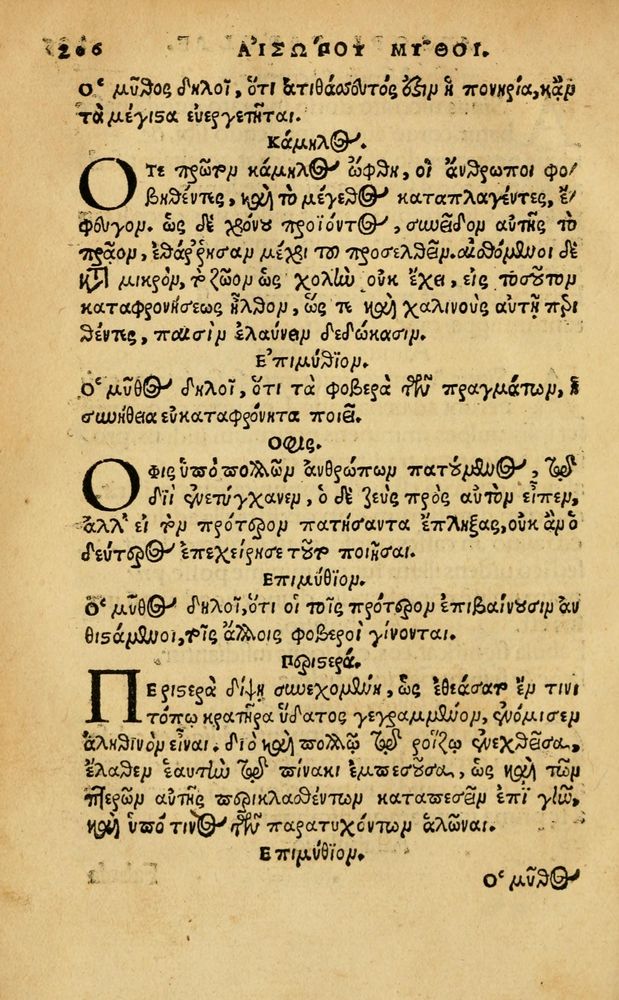 206 ΑΙΣΩΠΟΥ ΜΥΘΟΙ.
Ὁ μῦθος δηλοῖ, ὅτι ἀτιθάσσευτός ἐστιν ἡ πονηρία, κἂν
τὰ μέγιστα εὐεργετῆται.
Κάμηλος.
Ὅτε πρῶτον κάμηλος ὤφθη, οἱ ἄνθρωποι φο-
βηθέντες, καὶ τὸ μέγεθος καταπλαγέντες, ἔ-
φευγον. ὡς δὲ χρόνου προϊόντος, συνεῖδον αὐτῆς τὸ
πρᾶον, ἐθάῤῥησαν μέχρι τοῦ προσελθεῖν. αἰσθόμενοι δὲ
κατὰ μικρὸν, τὸ ζῶον ὡς χολὴν οὐκ ἔχει, εἰς τοσοῦτον
καταφρονήσεως ἦλθον, ὥς τε καὶ χαλινοὺς αὐτῇ περι
θέντες, παισὶν ἐλαύνειν δεδώκασιν.
Ἐπιμύθιον.
Ὁ μῦθος δηλοῖ, ὅτι τὰ φοβερὰ τῶν πραγμάτων, ἡ
συνήθεια εὐκαταφρόνητα ποιεῖ.
Οφις.
Οφις ὑπὸ πολλῶν ἀνθρώπων πατούμενος, τῷ
διῒ ἐνετύγχανεν, ὁ δὲ ζεὺς πρὸς αὐτὸν εἶπεν,
ἀλλ' εἰ τὸν πρότερον πατήσαντα ἔπληξας, οὐκ ἂν ὁ
δεύτερος ἐπεχείρησε τοῦτο ποιῆσαι.
Επιμύθιον.
Ὁ μῦθος δηλοῖ, ὅτι οἱ τοῖς πρότερον ἐπιβαίνουσιν ἀν
θιστάμενοι, τοῖς ἄλλοις φοβεροὶ γίνονται.
Περιστερά.
Περιστερὰ δίψῃ συνεχομένη, ὡς ἐθεάσατο ἔν τινι
τόπῳ κρατῆρα ὕδατος γεγραμμένον, ἐνόμισεν
ἀληθινὸν εἶναι. διὸ καὶ πολλῷ τῷ ῥοίζῳ ἐνεχθεῖσα,
ἔλαθεν ἑαυτὴν τῷ πίνακι ἐμπεσοῦσα, ὡς καὶ τῶν
πτερῶν αὐτῆς περικλασθέντων καταπεσεῖν ἐπὶ γῆν,
καὶ ὑπό τινος τῶν παρατυχόντων ἁλῶναι.
Επιμύθιον.
Ὁ μῦθος